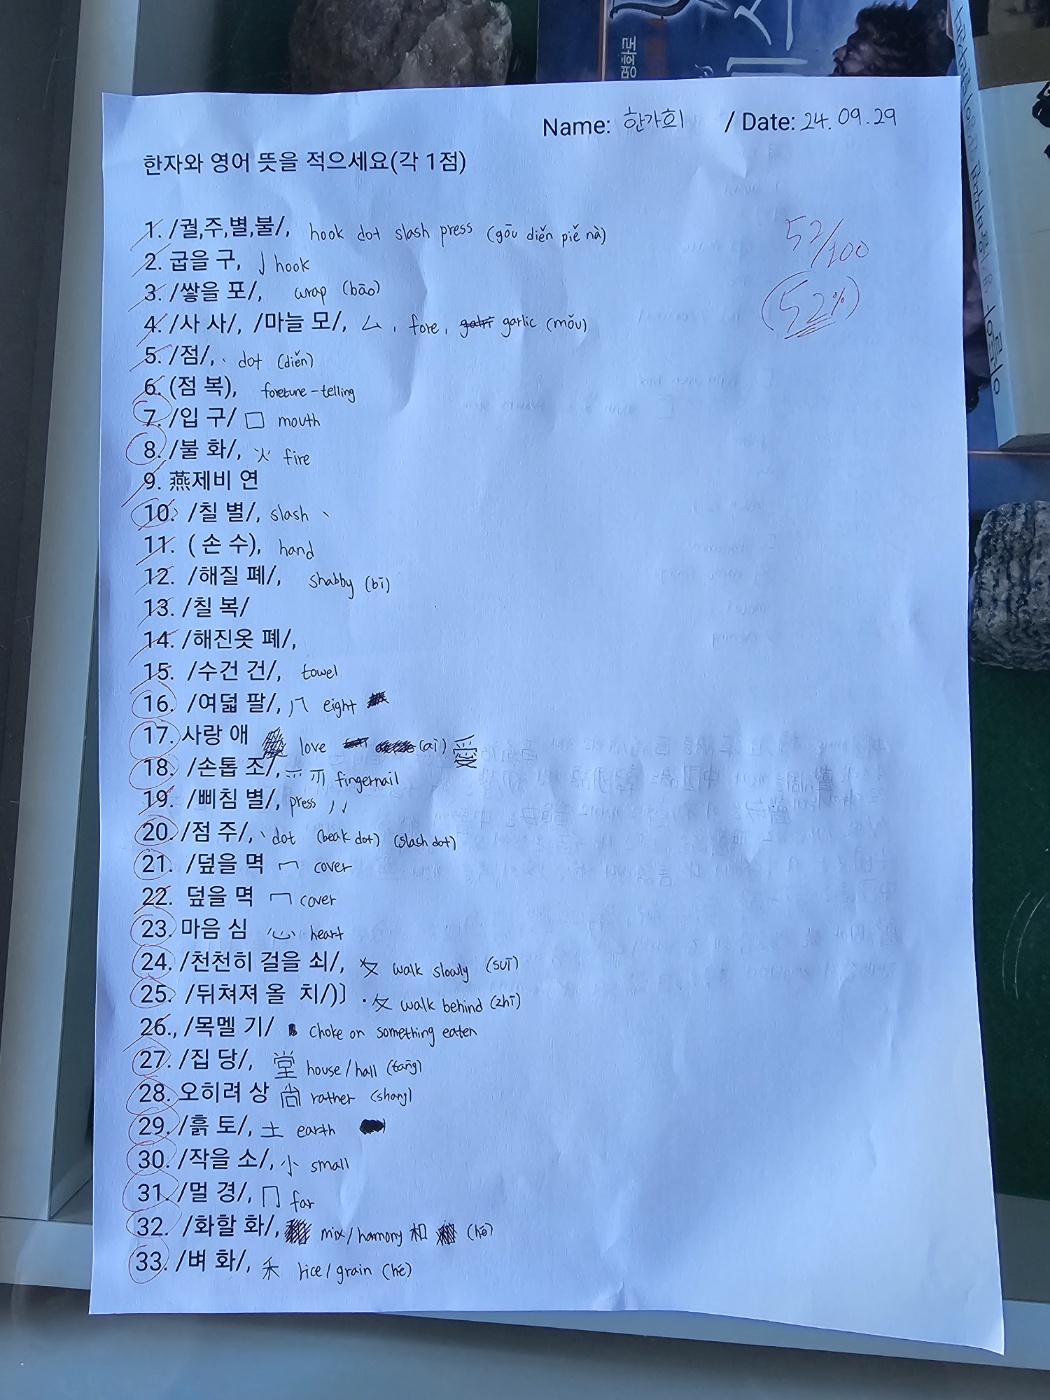 명화로
Name: 한가희 / Date: 24.09.29
한자와 영어 뜻을 적으세요(각 1점)
52/100
(52%)
1. /궐,주,별,불/, hook dot slash press (gōu diěn piě nà)
2. 굽을 구, 亅 hook
3. /쌓을 포/, wrap (bāo)
4. /사 사/, /마늘 모/, 厶 , fore, garlic (mǒu)
5. /점/, 、 dot (diěn)
6. (점 복), foretune-telling
7. /입 구/ 口 mouth
8. /불 화/, 火 fire
9. 燕제비 연
10. /칠 별/, slash 丶
11. ( 손 수), hand
12. /해질 폐/, shabby (bī)
13. /칠 복/
14. /해진옷 폐/,
15. /수건 건/, towel
16. /여덟 팔/, 八 eight
17. 사랑 애 love (aī) 愛
18. /손톱 조/, 爫 fingernail
19. /삐침 별/, press 丿丿
20. /점 주/, 丶 dot (beak dot) (slash dot)
21. /덮을 멱 冖 cover
22. 덮을 멱 冖 cover
23. 마음 심 心 heart
24. /천천히 걸을 쇠/, 夊 walk slowly (suī)
25. /뒤쳐져 올 치/)〕 · 夂 walk behind (zhǐ)
26., /목멜 기/ choke on something eaten
27. /집 당/, 堂 house/hall (tang)
28. 오히려 상 尙 rather (shang)
29. /흙 토/, 土 earth
30. /작을 소/, 小 small
31. /멀 경/, 冂 far
32. /화할 화/, mix/hamony 和 (hé)
33. /벼 화/, 禾 rice/grain (hé)